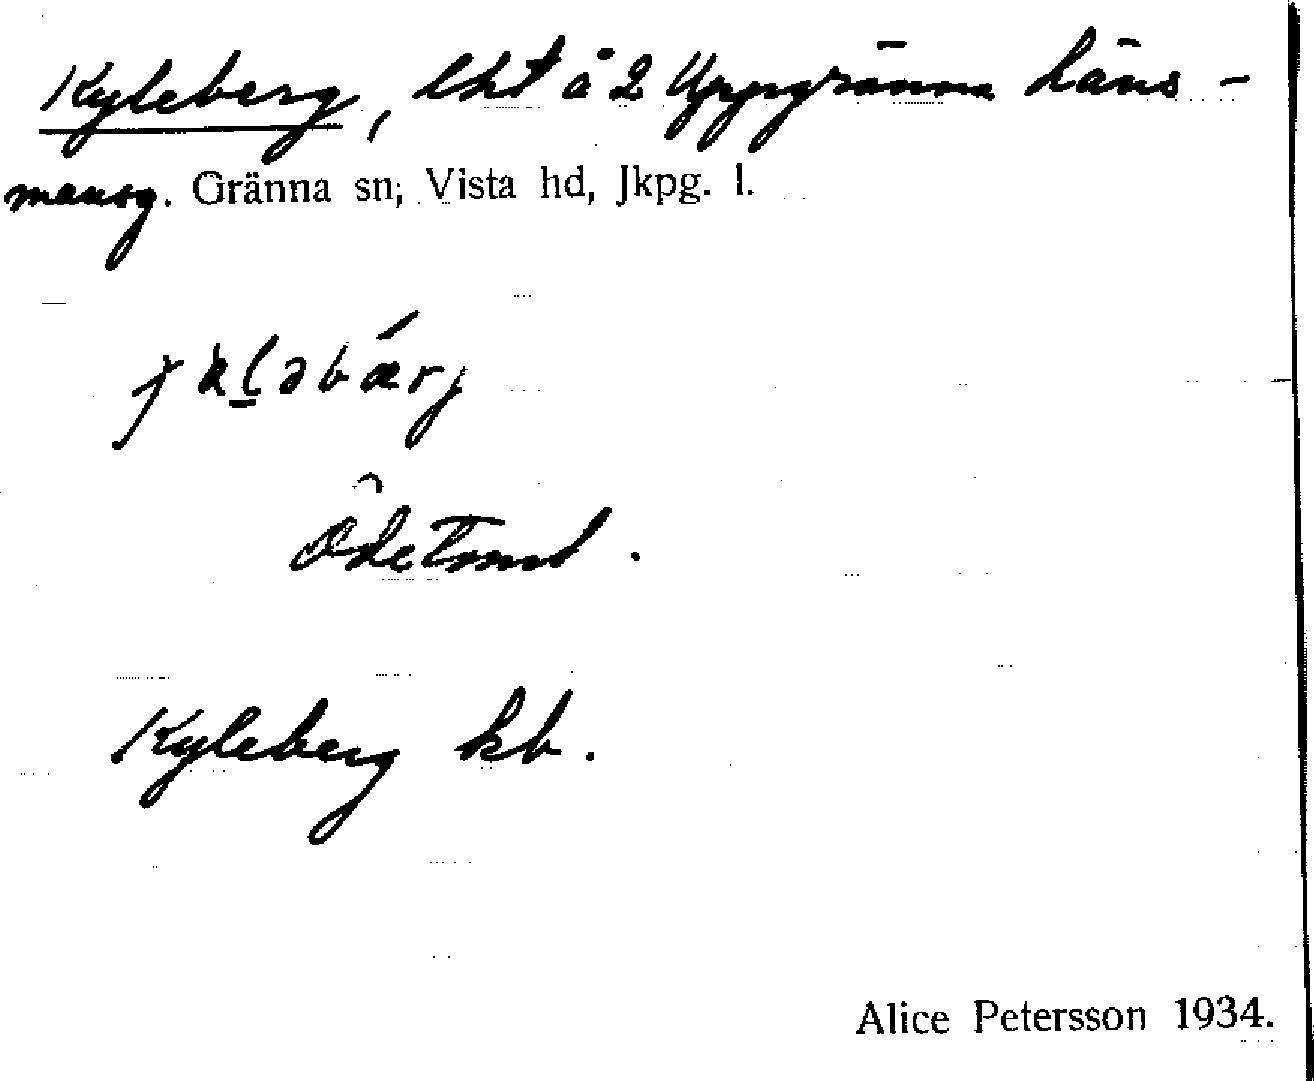 Kyleberg, lht å 2 Uppgränna Läns-
mansg. Gränna sn; Vista hd, Jkpg. l.
Ödetomt.
Kyleberg kb.
Alice Petersson 1934.